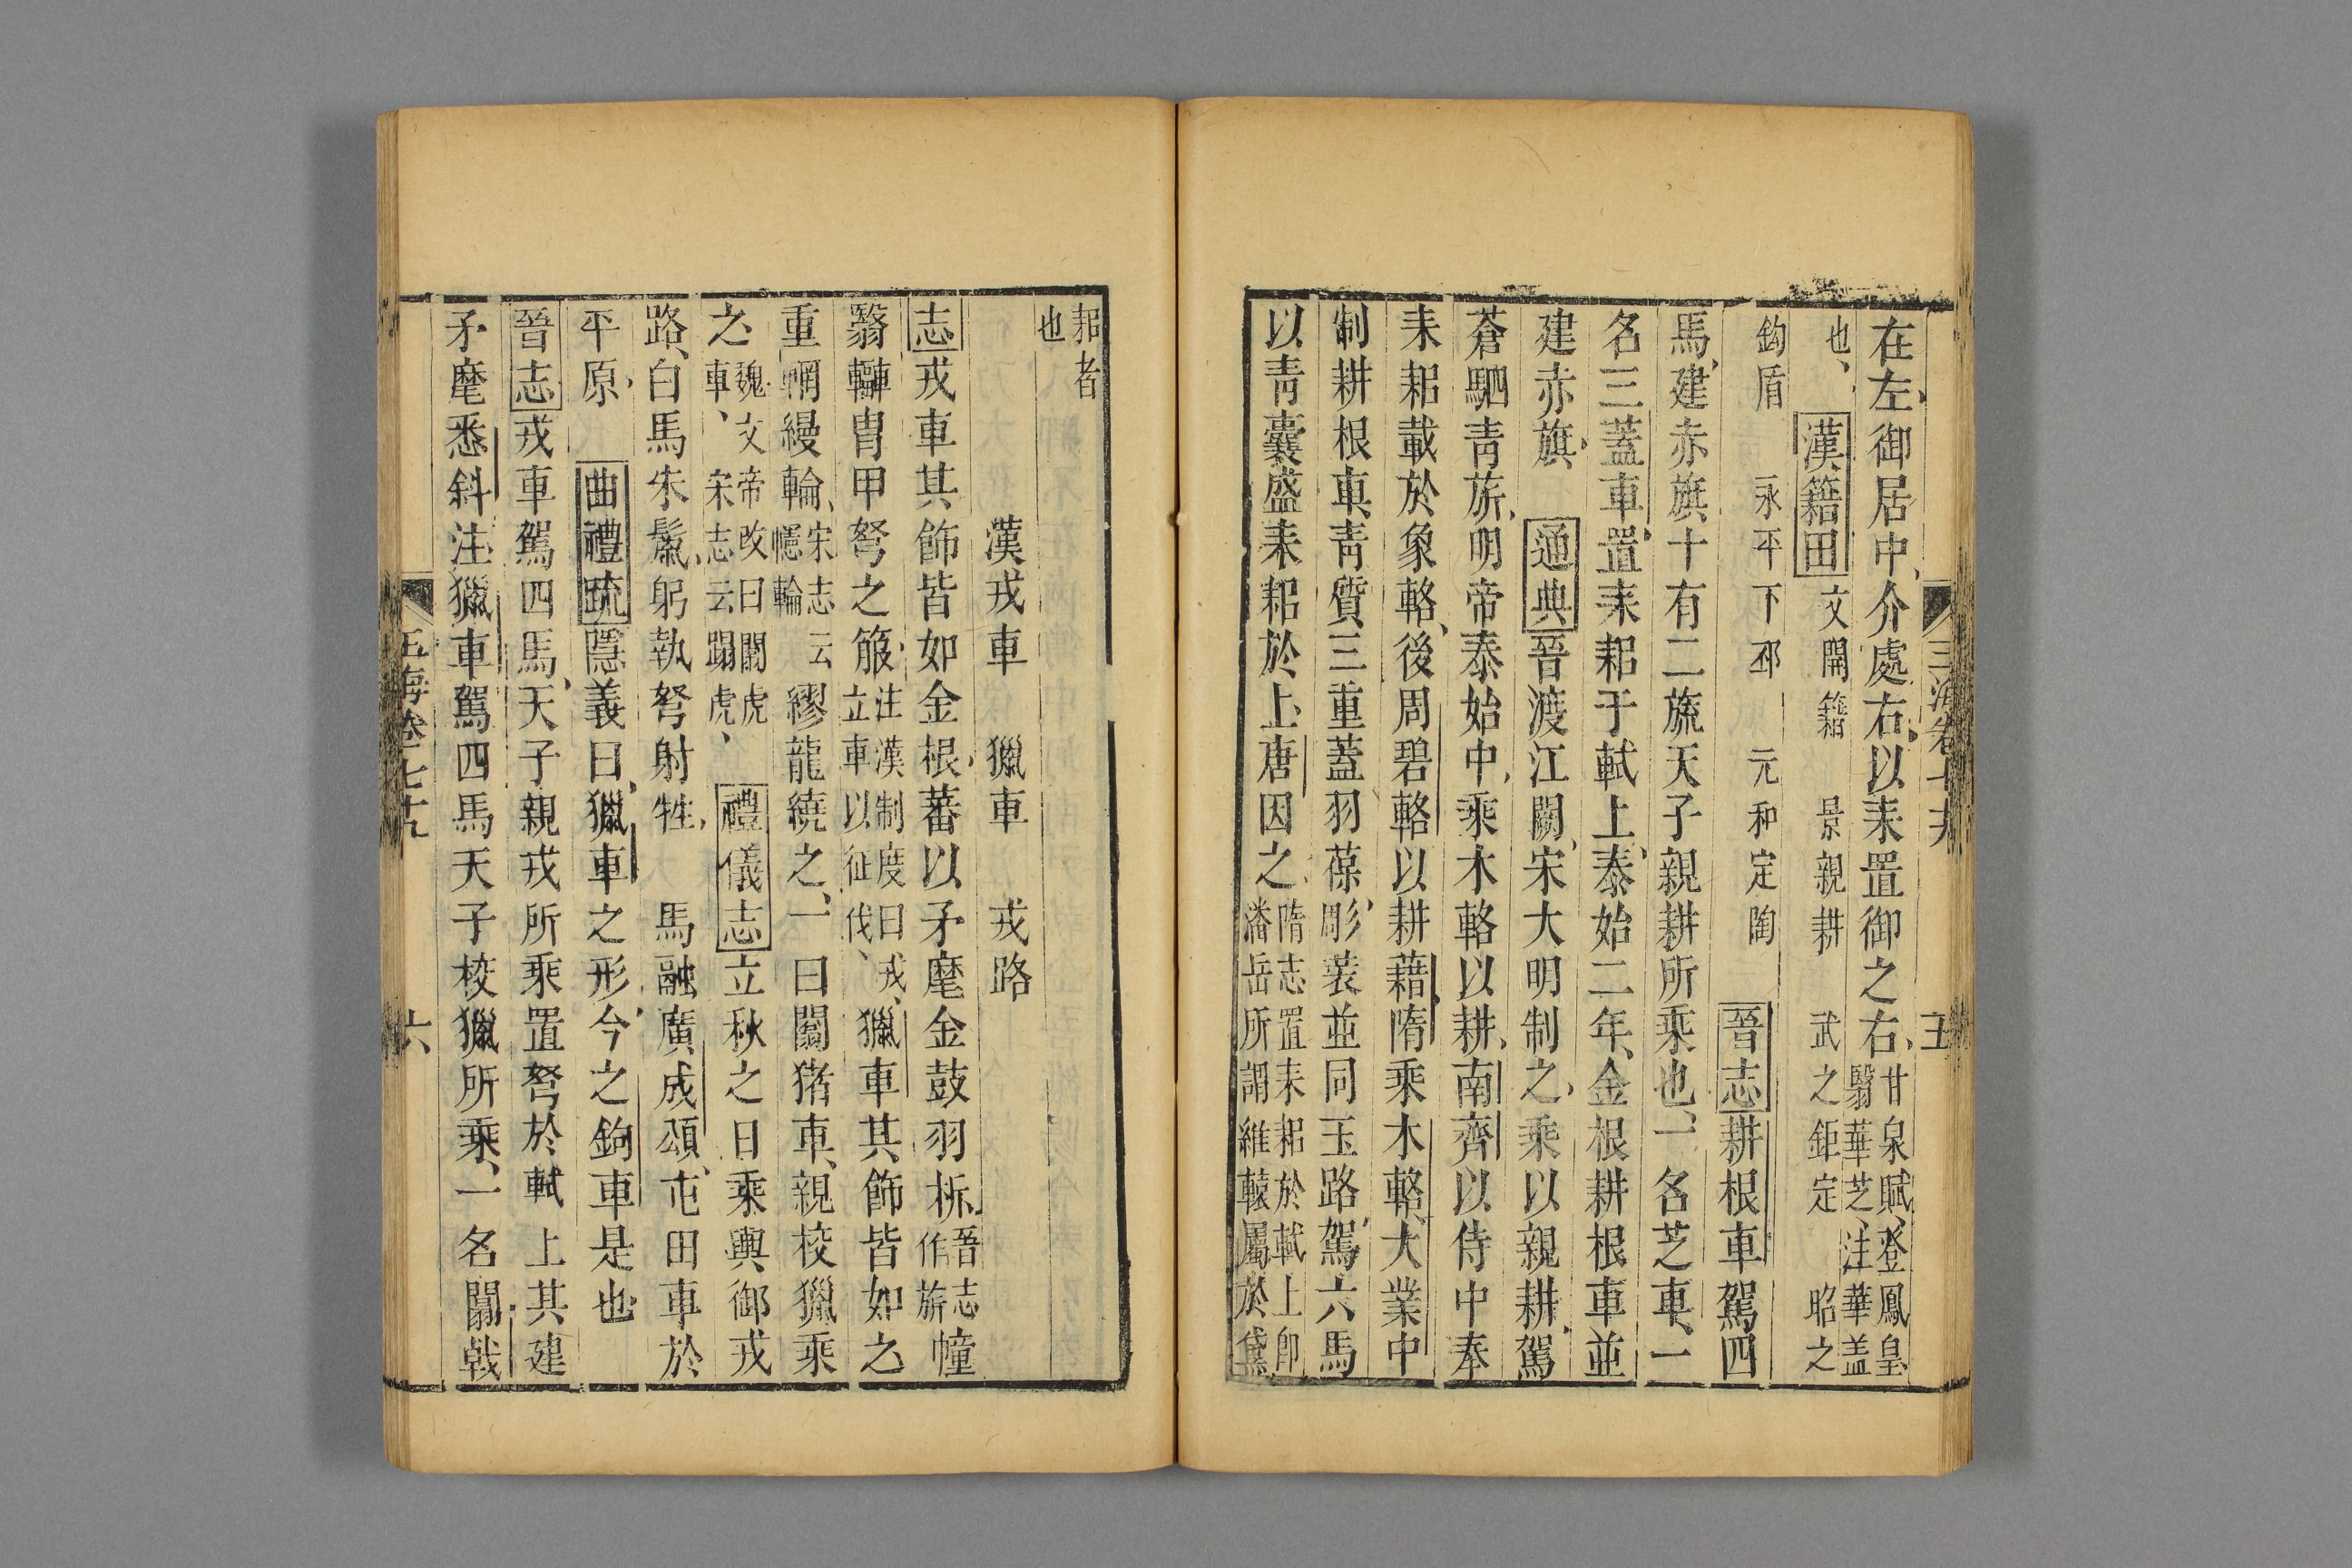 在左御居中介處右以耒置御之右甘泉賦登鳳皇翳華芝注華盖
也漢籍田文開籍 景親耕 武之鉅定 昭之
鈎盾 永平下邳 元和定陶 晉志耕根車駕四
馬建赤旗十有二旒天子親耕所乘也一名芝車一
名三蓋車置耒耜于軾上泰始二年金根耕根車並
建赤旗 通典晉渡江闕宋大明制之乘以親耕駕
蒼駟青旂明帝泰始中乘木輅以耕南齊以侍中奉
耒耜載於象輅後周碧輅以耕藉隋乘木輅大業中
制耕根車青質三重蓋羽葆彫裝並同玉路駕六馬
以青囊盛耒耜於上唐因之隋志置耒耜於軾上卽潘岳所謂維轅屬於黛
玉海卷七十九 五
耜者也
漢戎車 獵車 戎路
志戎車其飾皆如金根蕃以矛麾金鼓羽析晉志作旂幢
翳轊胄甲弩之箙注漢制度曰戎立車以征伐獵車其飾皆如之
重輞縵輪宋志云幰輪繆龍繞之一曰闟豬車親校獵乘
之魏文帝改曰闟虎車宋志云蹋虎 禮儀志立秋之日乘輿御戎
路白馬朱鬣躬執弩射牲 馬融廣成頌屯田車於
平原 曲禮疏隱義曰獵車之形今之鉤車是也
晉志戎車駕四馬天子親戎所乘置弩於軾上其建
矛麾悉斜注獵車駕四馬天子校獵所乘一名闟戟
玉海卷七十九 六